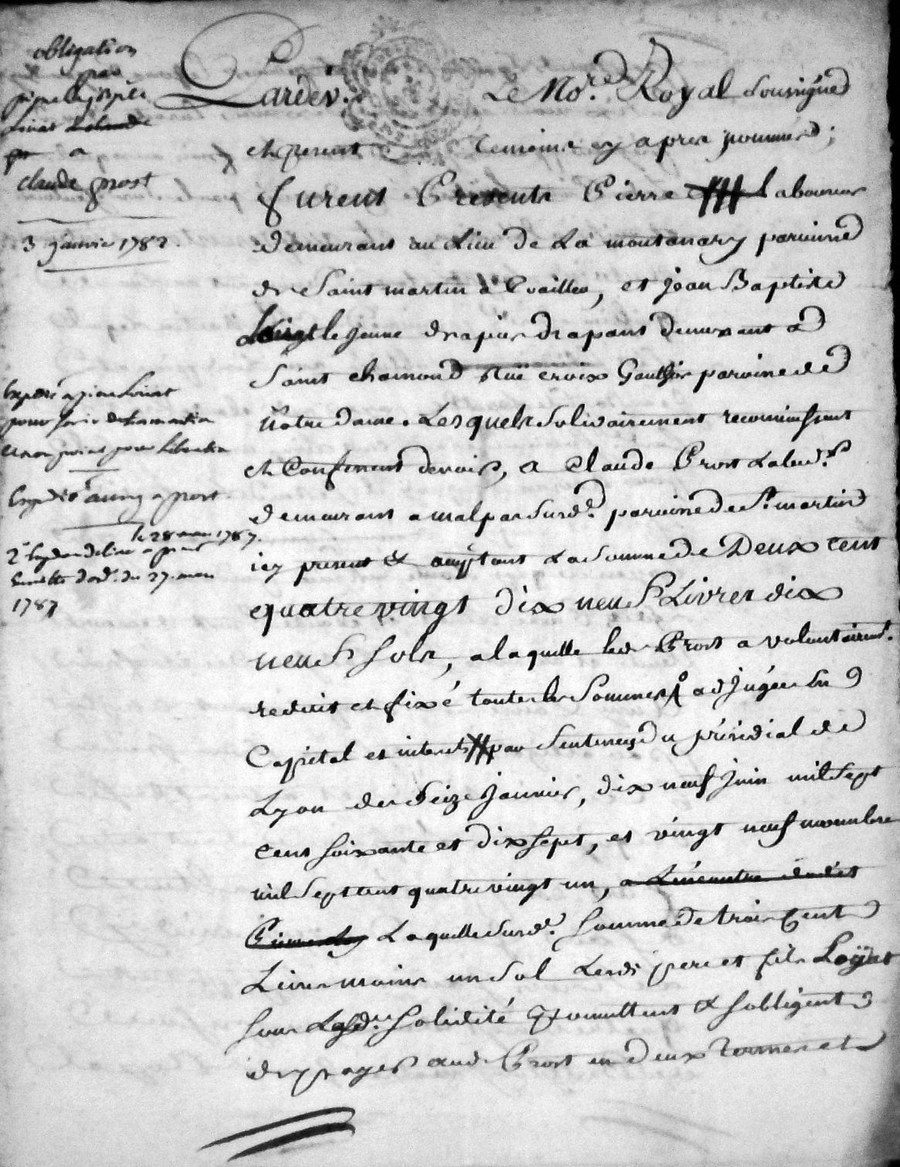 obligation
par
pierre & jn bpte
Loiat
a
claude prost
3 janvier 1782.
Expedié a jean Loiat
pour servir
et non pour Liberation
Expedié a prost
le 28 mars 1787.
2e Expedon delivrée a prost
ensuitte d'ord. du 27. mars
1787
Pardev. Le No.re Royal Soussigné
et present temoins cy apres nommés;
furent Presents Pierre Laboureur
demeurant au Lieu de La montanary paroisse
de Saint martin a Coailleu, et jean Baptiste
Loiat le jeune drapier drapant demeurant a
Saint chamond Rue croix Gauthier paroisse de
Notre dame. Lesquels Solidairement reconnoissent
et Confessent devoir, a Claude Prost Labr.
demeurant a malpas Susd. paroisse de St. martin
icy present & acceptant La Somme de Deux cent
quatre vingt dix neuf Livres dix
neuf sols, a laquelle led. Prost a volontairemt.
reduit et fixé toutes les Sommes adjugées en
Capital et interets par Sentences du présidial de
Lyon des Seize Janvier, dix neuf juin mil Sept
cent soixante et dix sept, et vingt neuf novembre
mil Sept cent quatre vingt un,
Laquelle Susd. Somme de trois Cent
Livres moins un Sol Lesds pere et fils Loÿat
sous Lad. Solidité promettent & s'obligent
de payer aud. Prost en deux termes et